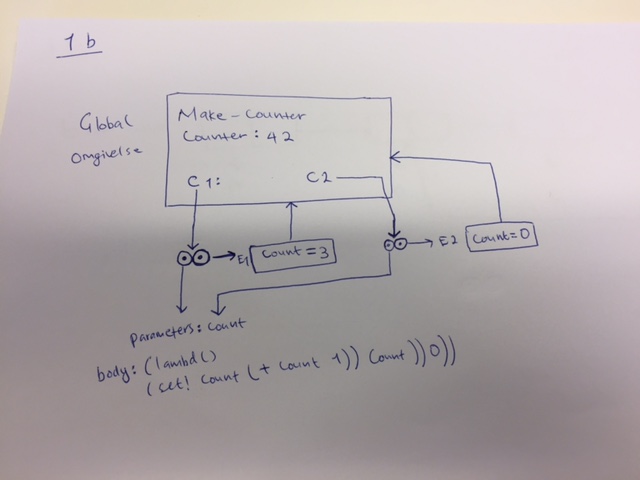 1 b
Global
omgivelse
Make-Counter
Counter: 42
C1:
C2
E1
Count=3
E2
Count=0
parameters: count
body: (lambd()
(set! count (+ count 1)) count))0))